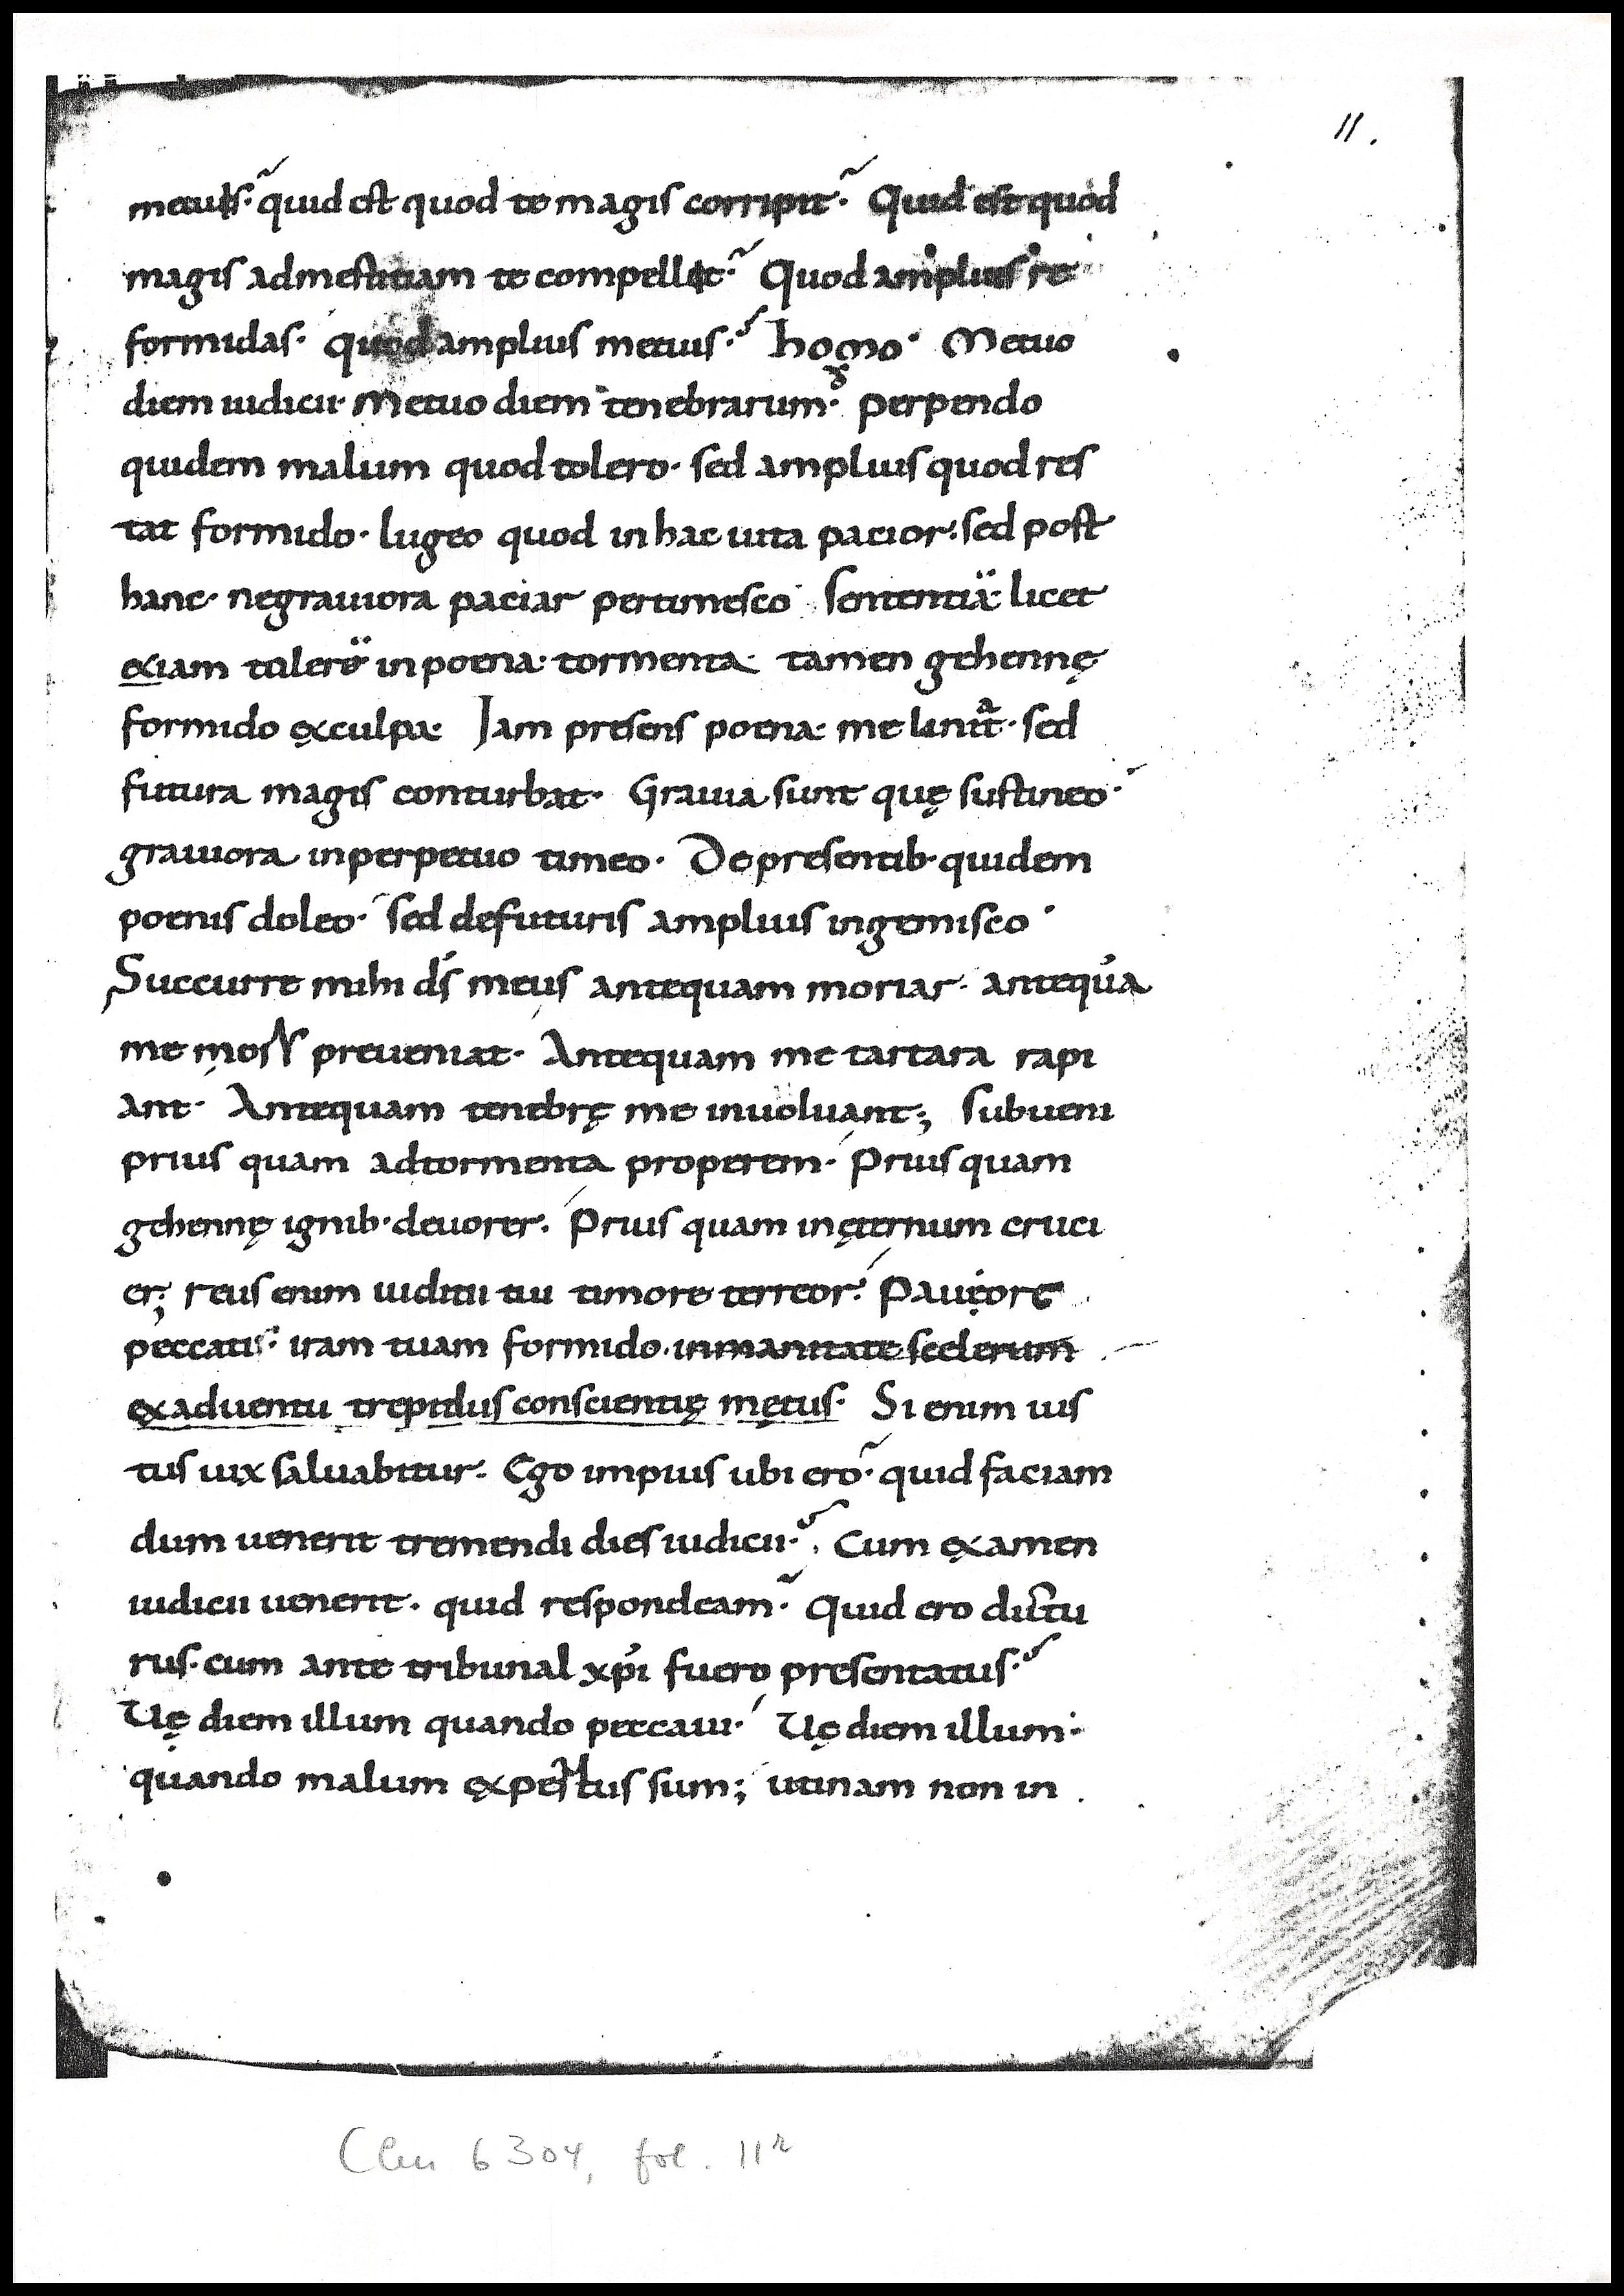 11.
metuis· quid est quod te magis corripit· Quid est quod
magis admestitiam te compellit· Quod amplius re
formidas· quod amplius metuis· homo· Metuo
diem iudicii· Metuo diem tenebrarum· perpendo
quidem malum quod tolero· sed amplius quod res
tat formido· lugeo quod in hac uita pacior· sed post
hanc· negrauiora paciar pertimesco sententia licet
exiam tolero in poena· tormenta· tamen gehennę
formido ęxculpa· Iam presens poena· me· sed
futura magis conturbat· Grauia sunt quę sustineo·
grauiora inperpetuo timeo· De presentib· quidem
poenis doleo· sed defuturis amplius ingemisco·
Succurre mihi ds̄ meus antequam moriar· antequā
me mors preueniat· Antequam me tartara rapi
ant· Antequam tenebrę me inuoluant; subueni
prius quam adtormenta properem· Prius quam
gehennę ignib· deuorer· Prius quam inęternum cruci
er; reus enim iudicii tui timore terreor· Pauore
peccatis· iram tuam formido· inmanitate scelerum
ęxaduentu trepidus conscientię mętus· Si enim ius
tus uix saluabitur· Ego impius ubi ero· quid faciam
dum uenerit tremendi dies iudicii· Cum ęxamen
iudicii uenerit· quid respondeam· Quid ero dictu
rus· cum ante tribunal xp̄i fuero presentatus·
Uę diem illum quando peccaui· Uę diem illum·
quando malum ęxpertus sum; utinam non in
Clm 6304, fol. 11r